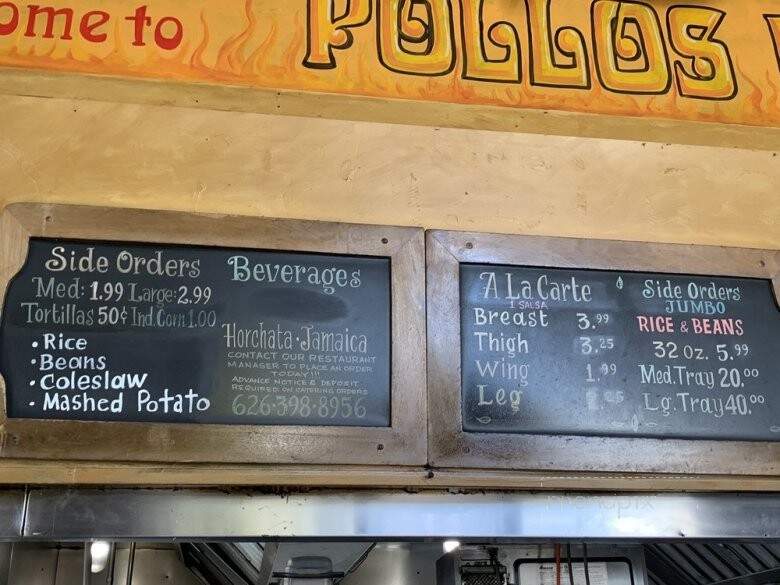 ome to POLLOS
Side Orders
Med: 1.99 Large: 2.99
Tortillas 50¢ Ind. Corn 1.00
• Rice
• Beans
• Coleslaw
• Mashed Potato
Beverages
Horchata · Jamaica
CONTACT OUR RESTAURANT
MANAGER TO PLACE AN ORDER
TODAY!!!
ADVANCE NOTICE & DEPOSIT
REQUIRED ON CATERING ORDERS
626·398·8956
A La Carte
1 SALSA
Breast 3.99
Thigh 3.25
Wing 1.99
Leg
Side Orders
JUMBO
RICE & BEANS
32 oz. 5.99
Med. Tray 20.00
Lg. Tray 40.00
menupix